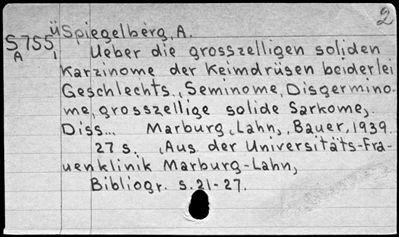 2
S755üSpiegelberg, A.
A
Ueber die grosszelligen soliden
Karzinome der Keimdrüsen beiderlei
Geschlechts., Seminome, Disgermino-
me, grosszellige solide Sarkome,
Diss... Marburg, Lahn,, Bauer, 1939.
27 s. (Aus der Universitäts-Fra-
uenklinik Marburg-Lahn,
Bibliogr. s. 21-27.